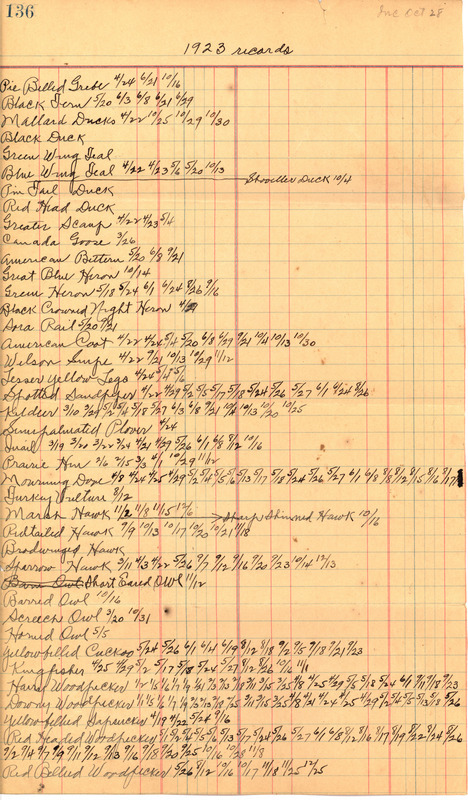 136
Inc Oct 28
1923 records
Pie Billed Grebe 4/24 6/21 10/16
Black Tern 5/20 6/3 6/8 6/21 6/29
Mallard Ducks 4/22 10/25 10/29 10/30
Black Duck
Green Wing Teal
Blue Wing Teal 4/22 4/23 5/6 5/20 10/13 Shoveller Duck 10/4
Pin Tail Duck
Red Head Duck
Greater Scaup 4/22 4/23 5/4
Canada Goose 3/26
American Bittern 5/20 6/8 9/21
Great Blue Heron 10/14
Green Heron 5/18 5/24 6/1 6/24 8/26 9/16
Black Crowned Night Heron
Sora Rail 5/20 9/21
American Coot 4/22 4/24 5/4 5/20 6/8 6/29 9/21 10/4 10/13 10/30
Wilson Snipe 4/22 9/21 10/13 10/29 11/12
Lesser Yellow Legs 4/24 5/4 5/6
Spotted Sandpiper 4/22 4/29 5/2 5/5 5/17 5/18 5/24 5/26 5/27 6/1 6/24 8/26
Killdeer 3/10 3/24 5/18 5/27 6/3 6/8 9/21 10/4 10/13 10/20 10/25
Semipalmated Plover 4/24
Quail 3/19 3/20 3/22 3/24 4/21 4/29 5/26 6/1 6/8 8/12 10/16
Prairie Hen 2/6 2/15 3/3 4/1 10/29 11/12
Mourning Dove 4/8 4/24 4/25 4/29 5/2 5/4 5/5 5/6 5/13 5/17 5/18 5/24 5/26 5/27 6/1 6/8 8/8 8/12 8/15 8/16 8/17
Turkey Vulture 8/12
Marsh Hawk 11/2 11/8 11/15 12/6 Sharp Shinned Hawk 10/16
Redtailed Hawk 9/9 10/13 10/17 10/20 10/21 11/18
Broadwinged Hawk
Sparrow Hawk 3/11 4/3 4/22 5/26 9/7 9/12 9/16 9/20 9/23 10/14 12/13
Barn Owl Short Eared Owl 11/12
Barred Owl 10/16
Screech Owl 3/20 10/31
Horned Owl 5/5
Yellowbilled Cuckoo 5/24 5/26 6/1 6/4 6/19 8/12 8/18 9/2 9/5 9/18 9/21 9/23
Kingfisher 4/25 4/29 5/2 5/17 5/18 5/24 5/27 8/12 8/26 10/6 11/1
Hairy Woodpecker
Downy Woodpecker
Yellowbellied Sapsucker 4/19 4/22 5/24 9/16
Red Headed Woodpecker
9/2 9/4 9/7 9/9 9/11 9/12 9/13 9/16 9/18 9/20 9/25 10/16 10/28 11/8
Red Bellied Woodpecker 5/26 8/12 10/16 10/17 11/18 11/25 12/25